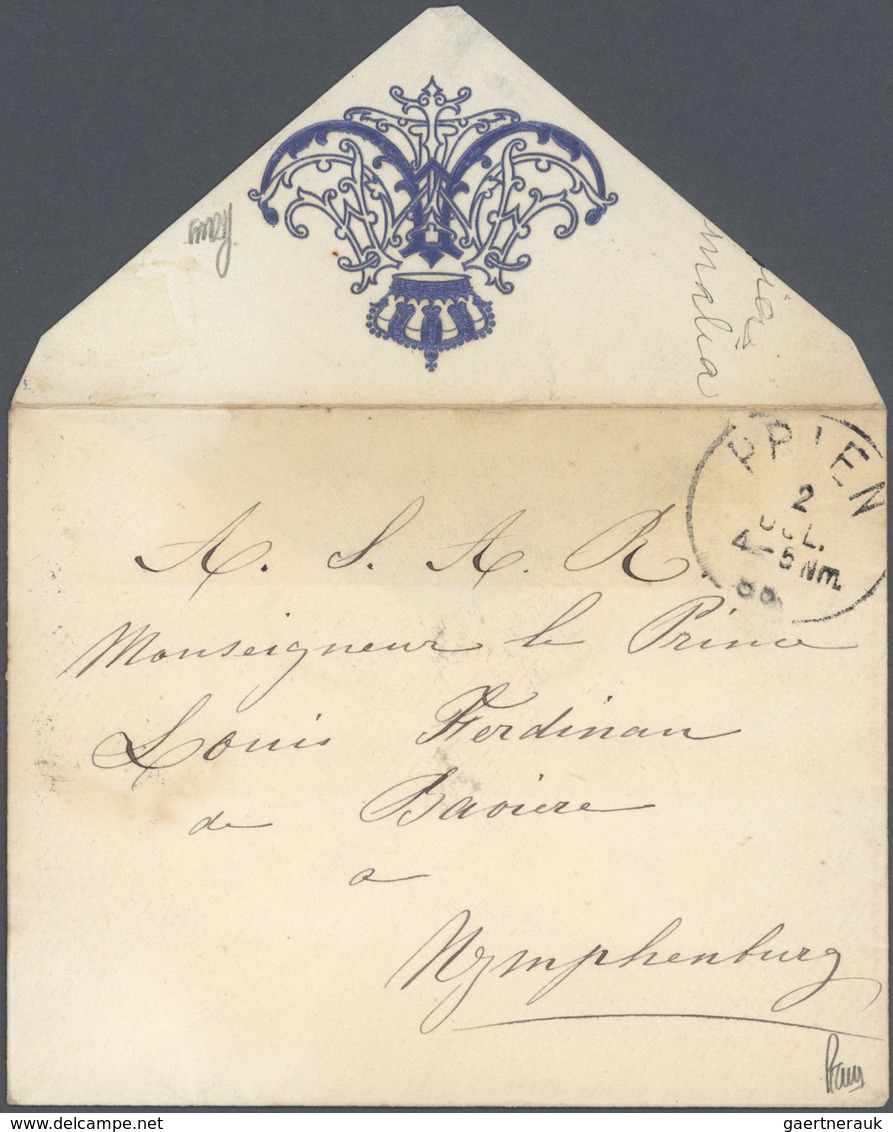 malia
PRIEN
2
JUL.
4-5 Nm.
A. S. A. R.
Monseigneur le Prince
Louis Ferdinan
de Baviere
a
Nymphenburg
delcampe.net
gaertnerauk